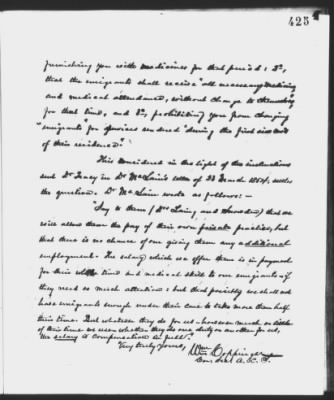 425
furnishing you with medicines for that period: 2d,
that the emigrants shall receive "all necessary medicine
and medical attendance, without charge to themselves
for that time, and 3d, prohibiting you from charging
"emigrants" for services rendered "during the first six
of their residence".
This considered in the light of the instructions
and Dr. McLain's letter of 23 March 1854, settles
the question. Dr. McLain wrote as follows:—
"Say to them (Drs. Laing and Snowden) that we
will allow them the pay of their own private practice, but
that there is no chance of our giving them any additional
employment. The salary which we offer them is in payment
for their whole time and medical skill to our emigrants if
they need so much attention: but that possibly we shall not
have emigrants enough under their care to take more than half
their time. But whatever they do for us—however much or little
of their time we use—whether they do one duty or another for us,
the salary is compensation in full."
Very truly yours,
Wm Coppinger
Cor. Sec. A. C. S.